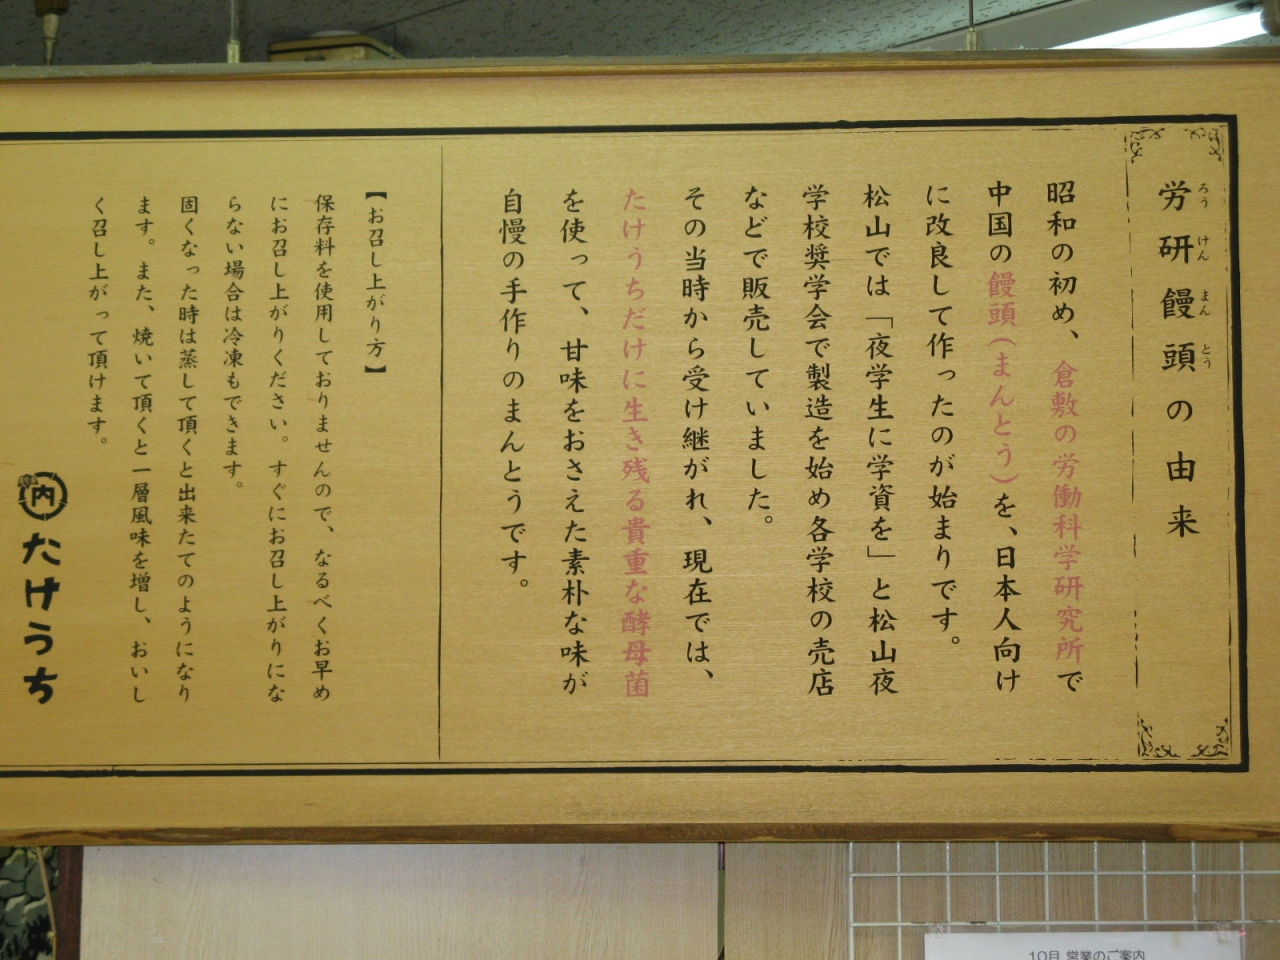 労研饅頭の由来
ろうけんまんとう
昭和の初め、倉敷の労働科学研究所で
中国の饅頭(まんとう)を、日本人向け
に改良して作ったのが始まりです。
松山では「夜学生に学資を」と松山夜
学校奨学会で製造を始め各学校の売店
などで販売していました。
その当時から受け継がれ、現在では、
たけうちだけに生き残る貴重な酵母菌
を使って、甘味をおさえた素朴な味が
自慢の手作りのまんとうです。
【お召し上がり方】
保存料を使用しておりませんので、なるべくお早め
にお召し上がりください。すぐにお召し上がりにな
らない場合は冷凍もできます。
固くなった時は蒸して頂くと出来たてのようになり
ます。また、焼いて頂くと一層風味を増し、おいし
く召し上がって頂けます。
内
たけうち
10月 営業のご案内